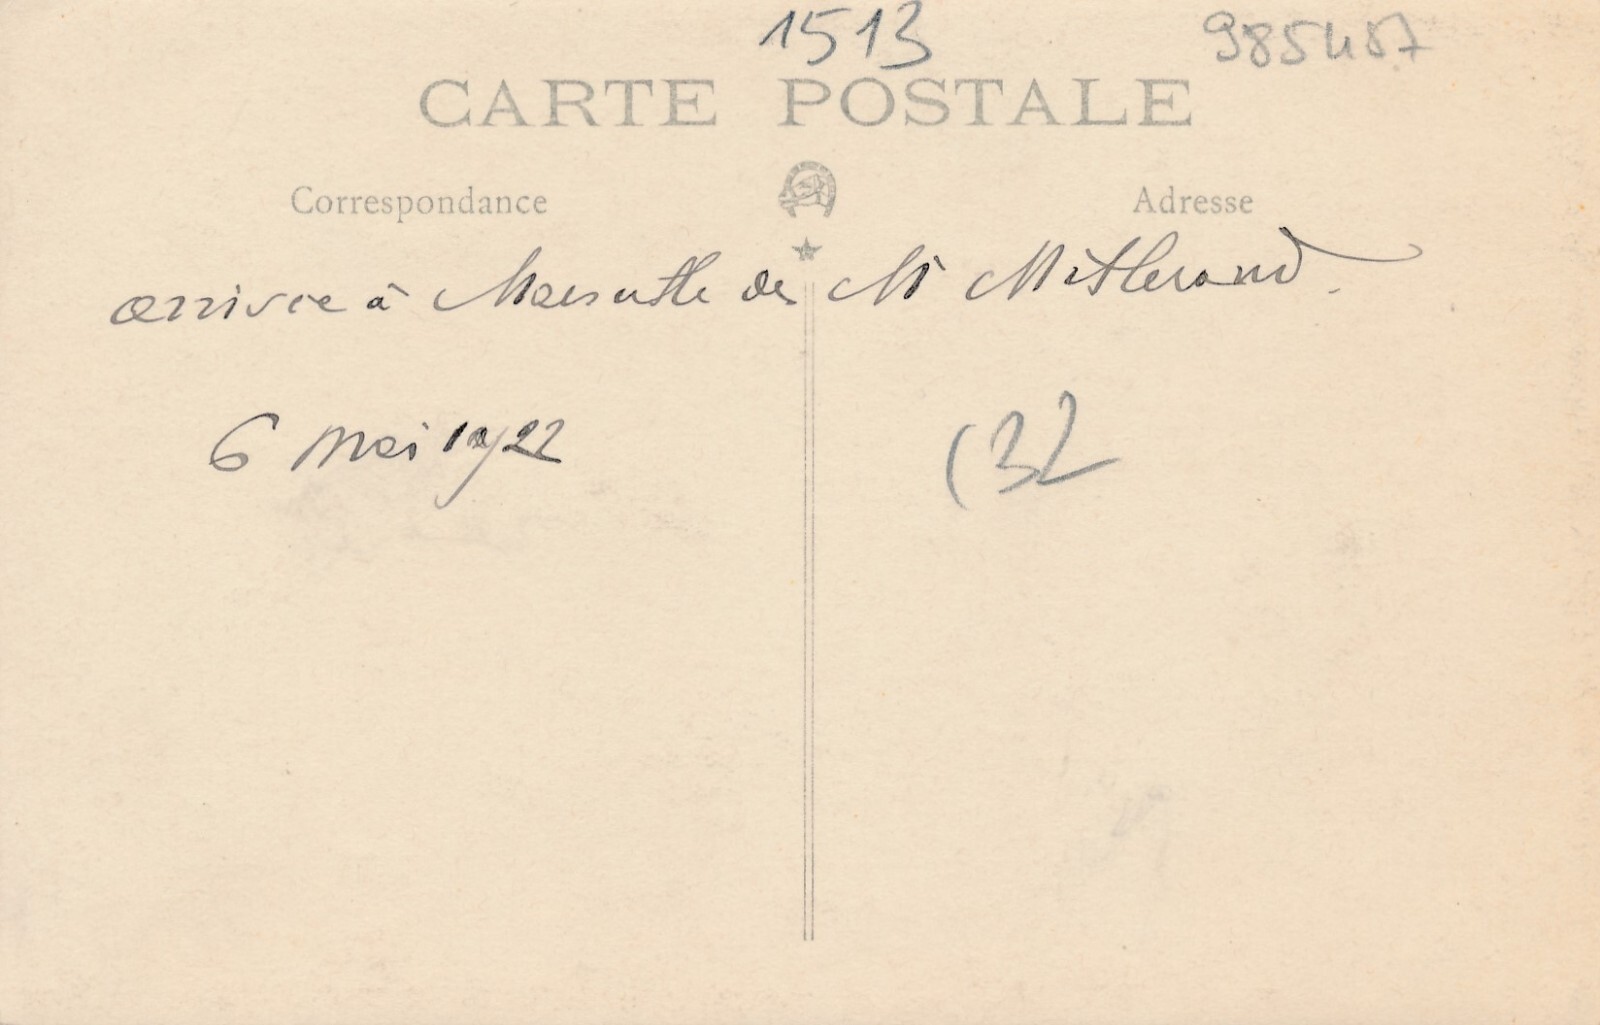 1513
985487
CARTE POSTALE
Correspondance
Adresse
arrivée à Marseille de Mr Millerand.
6 Mai 1922
(32